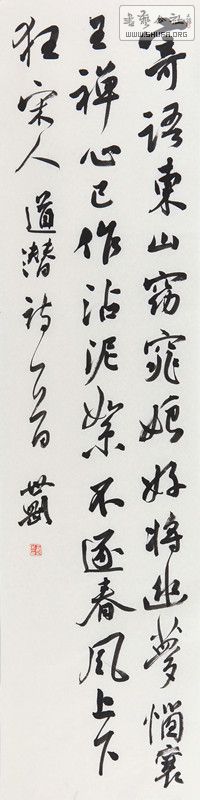 WWW.SHUFA.ORG
寄語東山窈窕娘好將幽夢惱襄
王禪心已作沾泥絮不逐春風上下
狂宋人道潛詩一首世